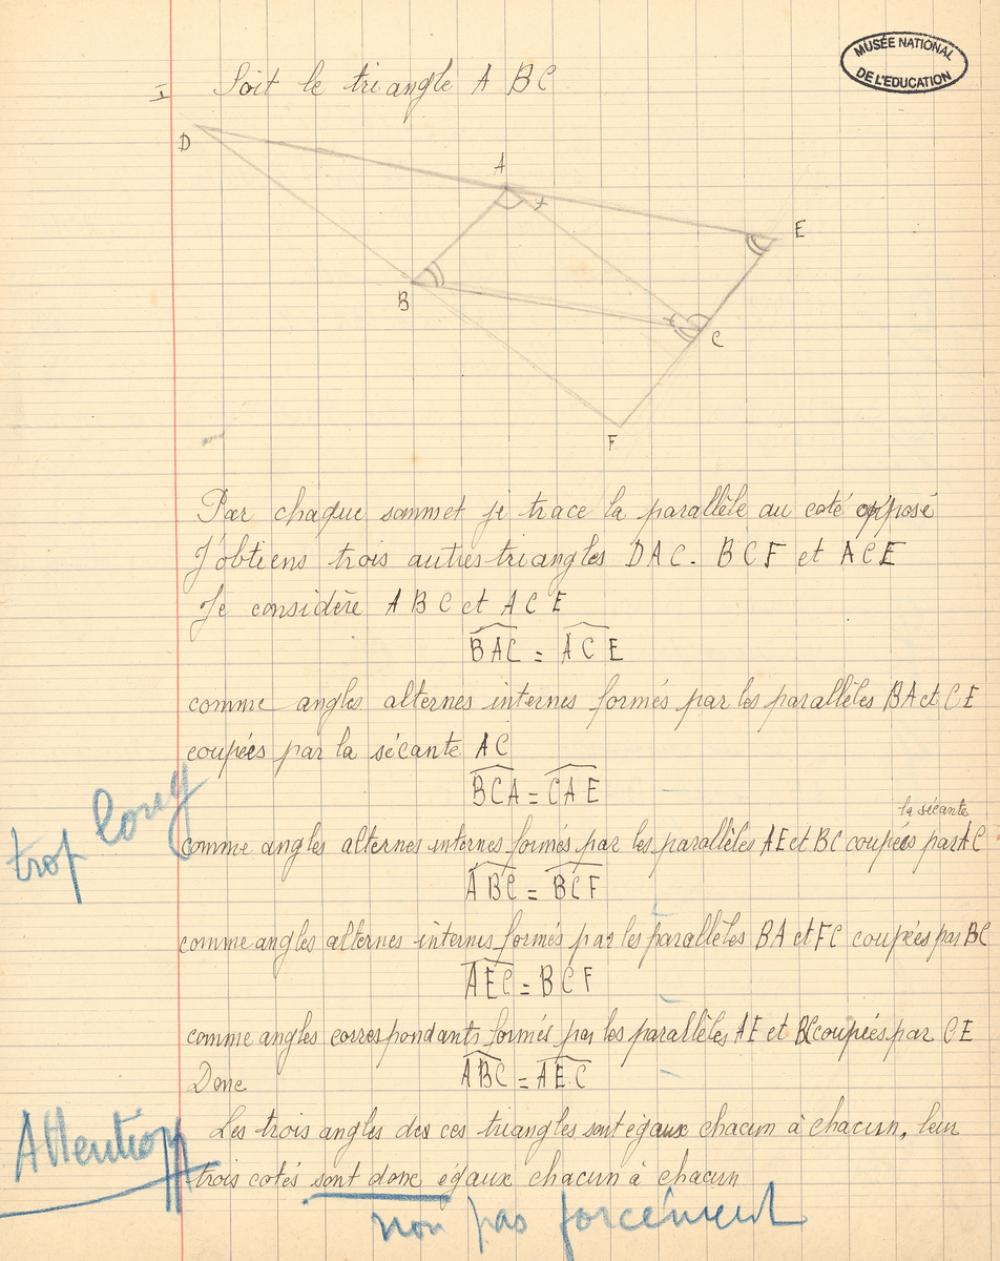 MUSÉE NATIONAL
DE L'EDUCATION
I Soit le triangle A B C
D
A
x
E
B
x
C
F
Par chaque sommet je trace la parallèle au coté opposé
J'obtiens trois autres triangles DAC. BCF et ACE
Je considère ABC et ACE
BAC = ACE
comme angles alternes internes formés par les parallèles BA et CE
coupées par la sécante AC
BCA = CAE
trop long
la sécante
comme angles alternes internes formés par les parallèles AE et BC coupées par AC
ABC = BCF
comme angles alternes internes formés par les parallèles BA et FC coupées par BC
AEC = BCF
comme angles correspondants formés par les parallèles AE et BC coupées par CE
Donc ABC = AEC
Attention
Les trois angles des ces triangles sont égaux chacun à chacun, leur
trois cotés sont donc égaux chacun à chacun
non pas forcément